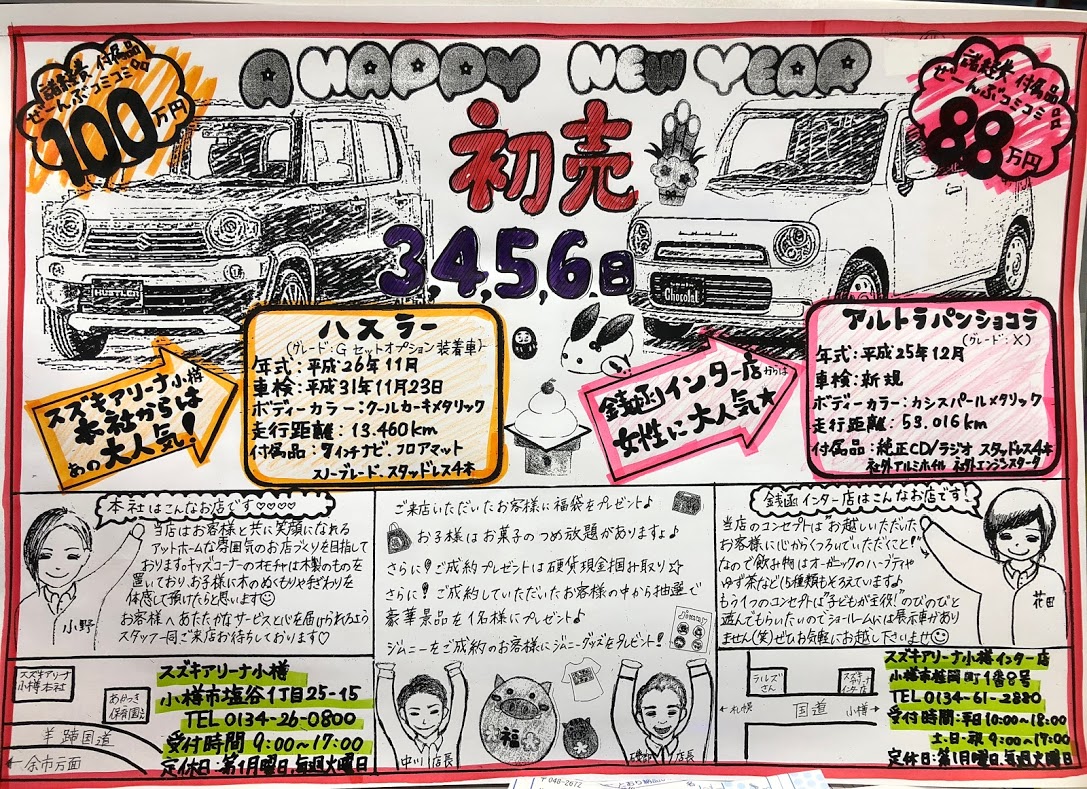 A HAPPY NEW YEAR
諸経費 付属品
ぜーんぶコミコミ品
100万円
諸経費 付属品
ぜーんぶコミコミ品
88万円
初売
3,4,5,6日
HUSTLER
Chocolat
ハスラー
(グレード:G セットオプション装着車)
年式:平成26年11月
車検:平成31年11月23日
ボディーカラー:クールカーキメタリック
走行距離:13.460km
付属品:8インチナビ.フロアマット
スノーブレード.スタッドレス4本
スズキアリーナ小樽
本社からは
あの大人気!
アルトラパンショコラ
(グレード:X)
年式:平成25年12月
車検:新規
ボディーカラー:カシスパールメタリック
走行距離:53.016km
付属品:純正CD/ラジオ スタッドレス4本
社外アルミホイル 社外エンジンスターター
銭函インター店からは
女性に大人気★
本社はこんなお店です♡♡♡♡
当店はお客様と共に笑顔になれる
アットホームな雰囲気のお店づくりを目指して
おります。キッズコーナーのオモチャは木製のものを
置いており、お子様に木のぬくもりやぎわりを
体感して頂けたらと思います☺
お客様へあたたかなサービスと心を届けられるよう
スタッフ一同ご来店お待ちしております♡
小野
ご来店いただいたお客様に福袋をプレゼント♪
お子様はお菓子のつめ放題がありますよ♪
さらに!ご成約プレゼントは硬貨現金掴み取り☆
さらに!ご成約していただいたお客様の中から抽選で
豪華景品を1名様にプレゼント!
ジムニーをご成約のお客様にジムニーグッズをプレゼント!
Jimny
銭函インター店はこんなお店です!
当店のコンセプトは"お越しいただいた
お客様に心からくつろいでいただくこと!"
なので飲み物はオーガニックのハーブティや
ゆず茶など15種類もそろえていますよ♪
もう1つのコンセプトは"子どもが主役!"のびのびと
遊んでもらいたいのでショールームには展示車があり
ません(笑)ぜひお気軽にお越し下さいませ☺
花田
スズキアリーナ
小樽本社
あかつき
保育園
羊蹄国道
←余市方面
スズキアリーナ小樽
小樽市塩谷1丁目25-15
TEL 0134-26-0800
受付時間 9:00〜17:00
定休日:第1月曜日,毎週火曜日
中川 店長
福
店長
ラルズ
さん
スズキ
アリーナ
インター店
←札幌
国道
小樽→
スズキアリーナ小樽インター店
小樽市桂岡町1番8号
TEL 0134-61-2880
受付時間:平日10:00〜18:00
土.日.祝 9:00〜17:00
定休日:第1月曜日,毎週火曜日
〒048-2672